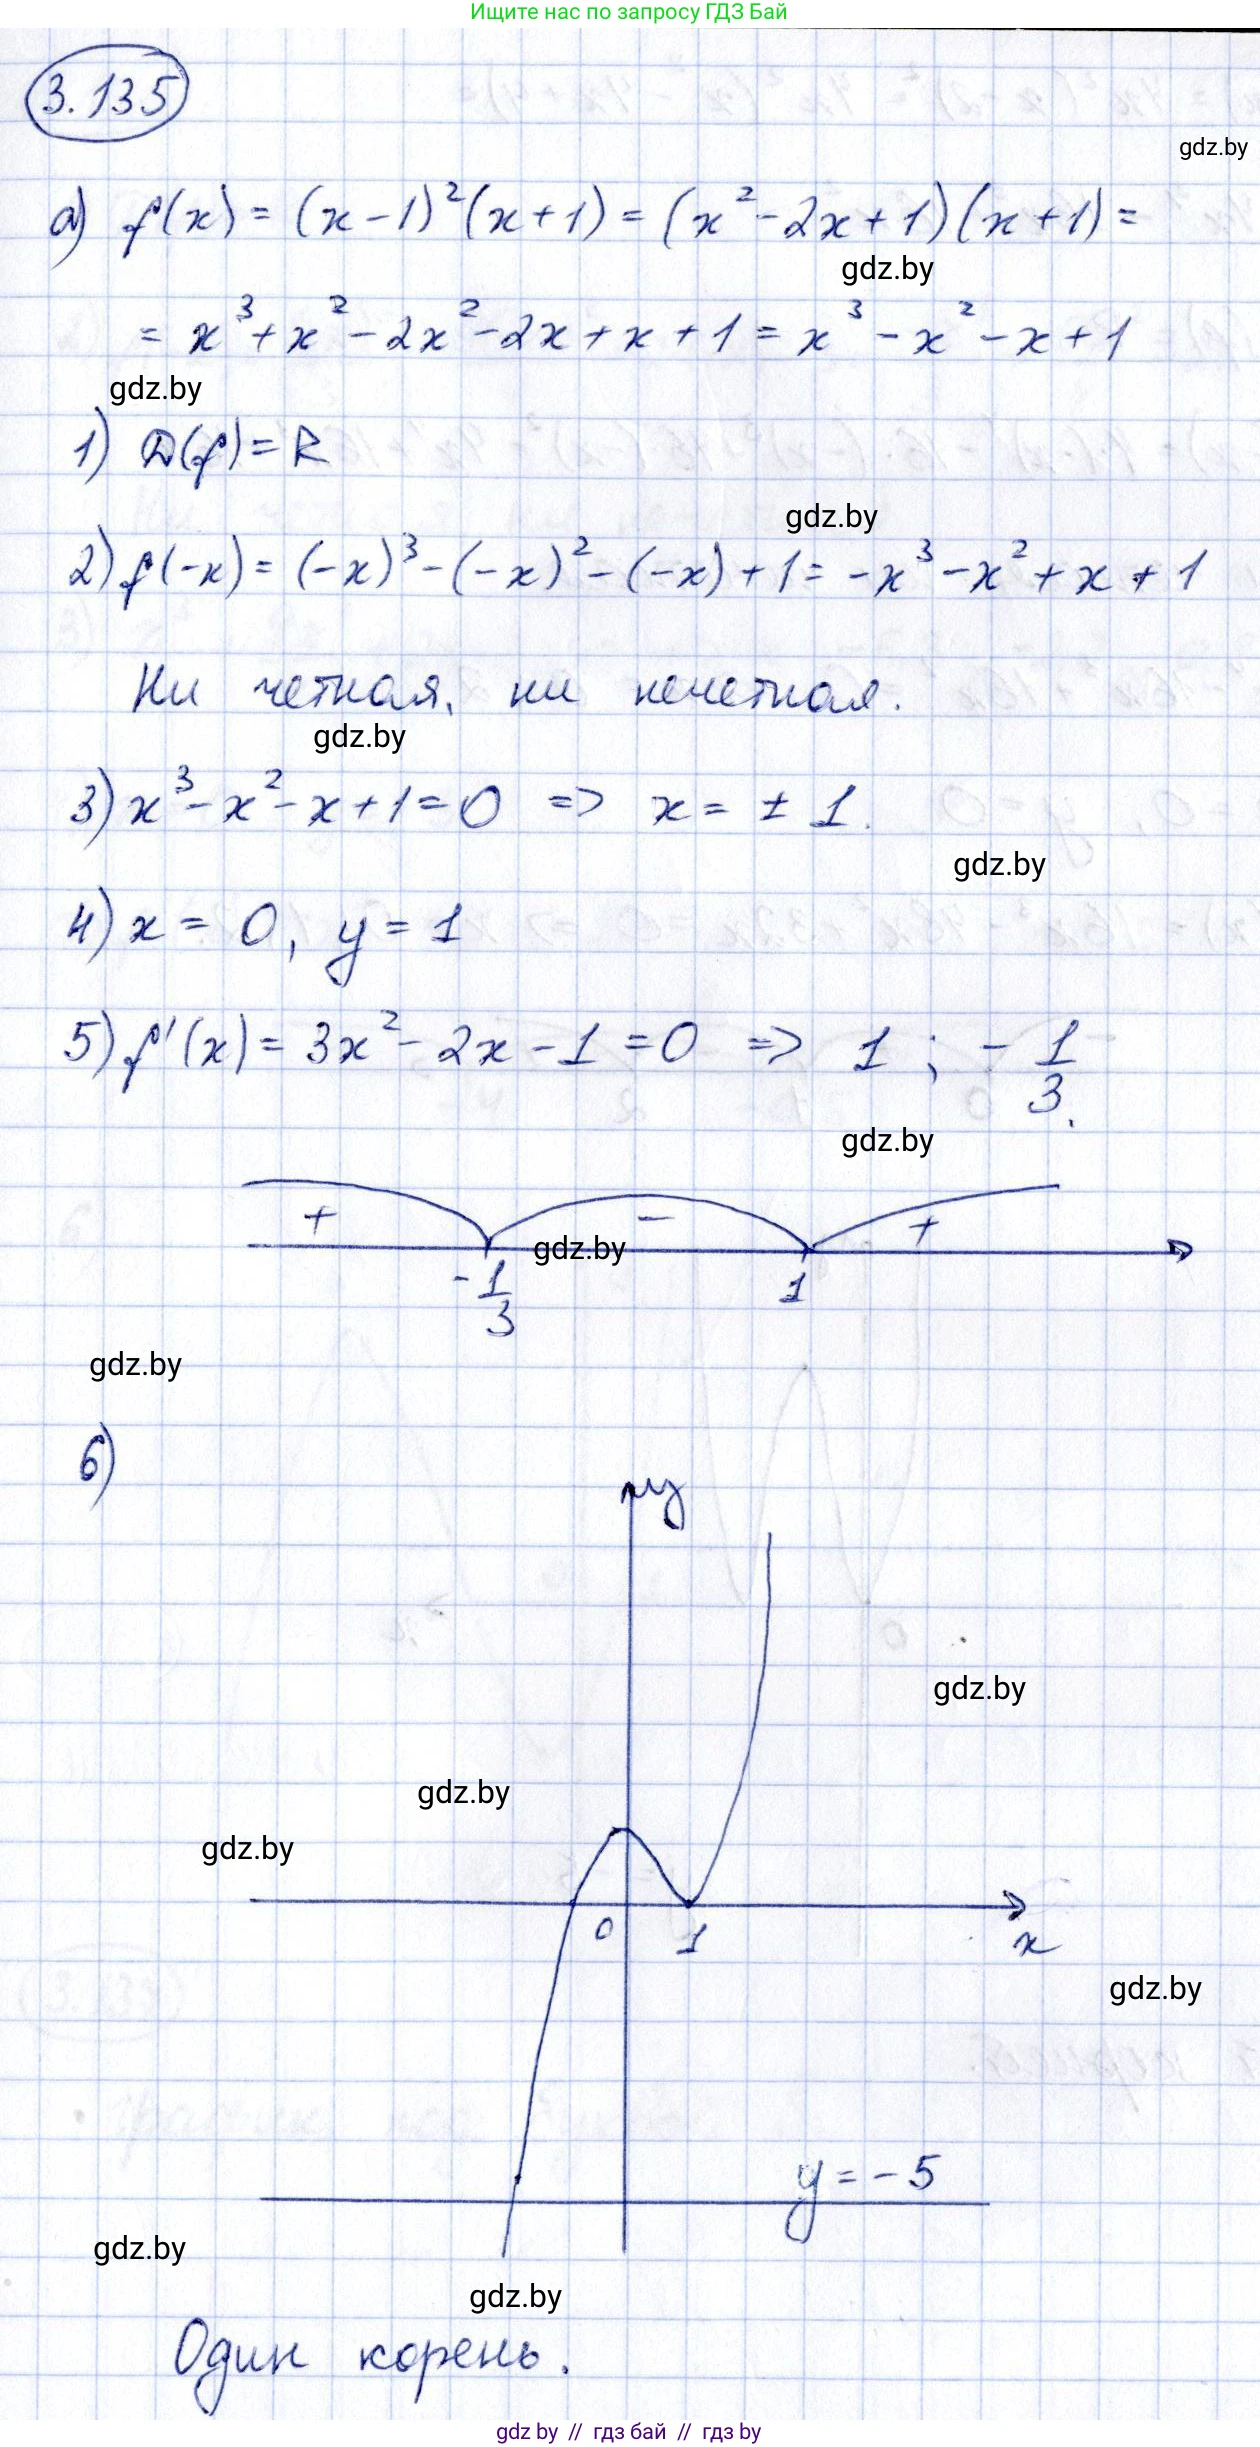 Ищите нас по запросу ГДЗ Бай
3.135
gdz.by
а) f(x) = (x-1)²(x+1) = (x²-2x+1)(x+1) =
gdz.by
= x³+x²-2x²-2x+x+1 = x³-x²-x+1
gdz.by
1) D(f) = R
gdz.by
2) f(-x) = (-x)³-(-x)²-(-x)+1 = -x³-x²+x+1
Ни четная, ни нечетная.
gdz.by
3) x³-x²-x+1=0 => x = ± 1.
gdz.by
4) x = 0, y = 1
5) f'(x) = 3x²-2x-1 =0 => 1 ; -1/3.
gdz.by
+ - +
gdz.by
-1/3 1
gdz.by
6)
y
gdz.by
gdz.by
gdz.by
0 1 x
gdz.by
y = -5
gdz.by
gdz.by
Один корень.
gdz by // гдз бай // гдз by